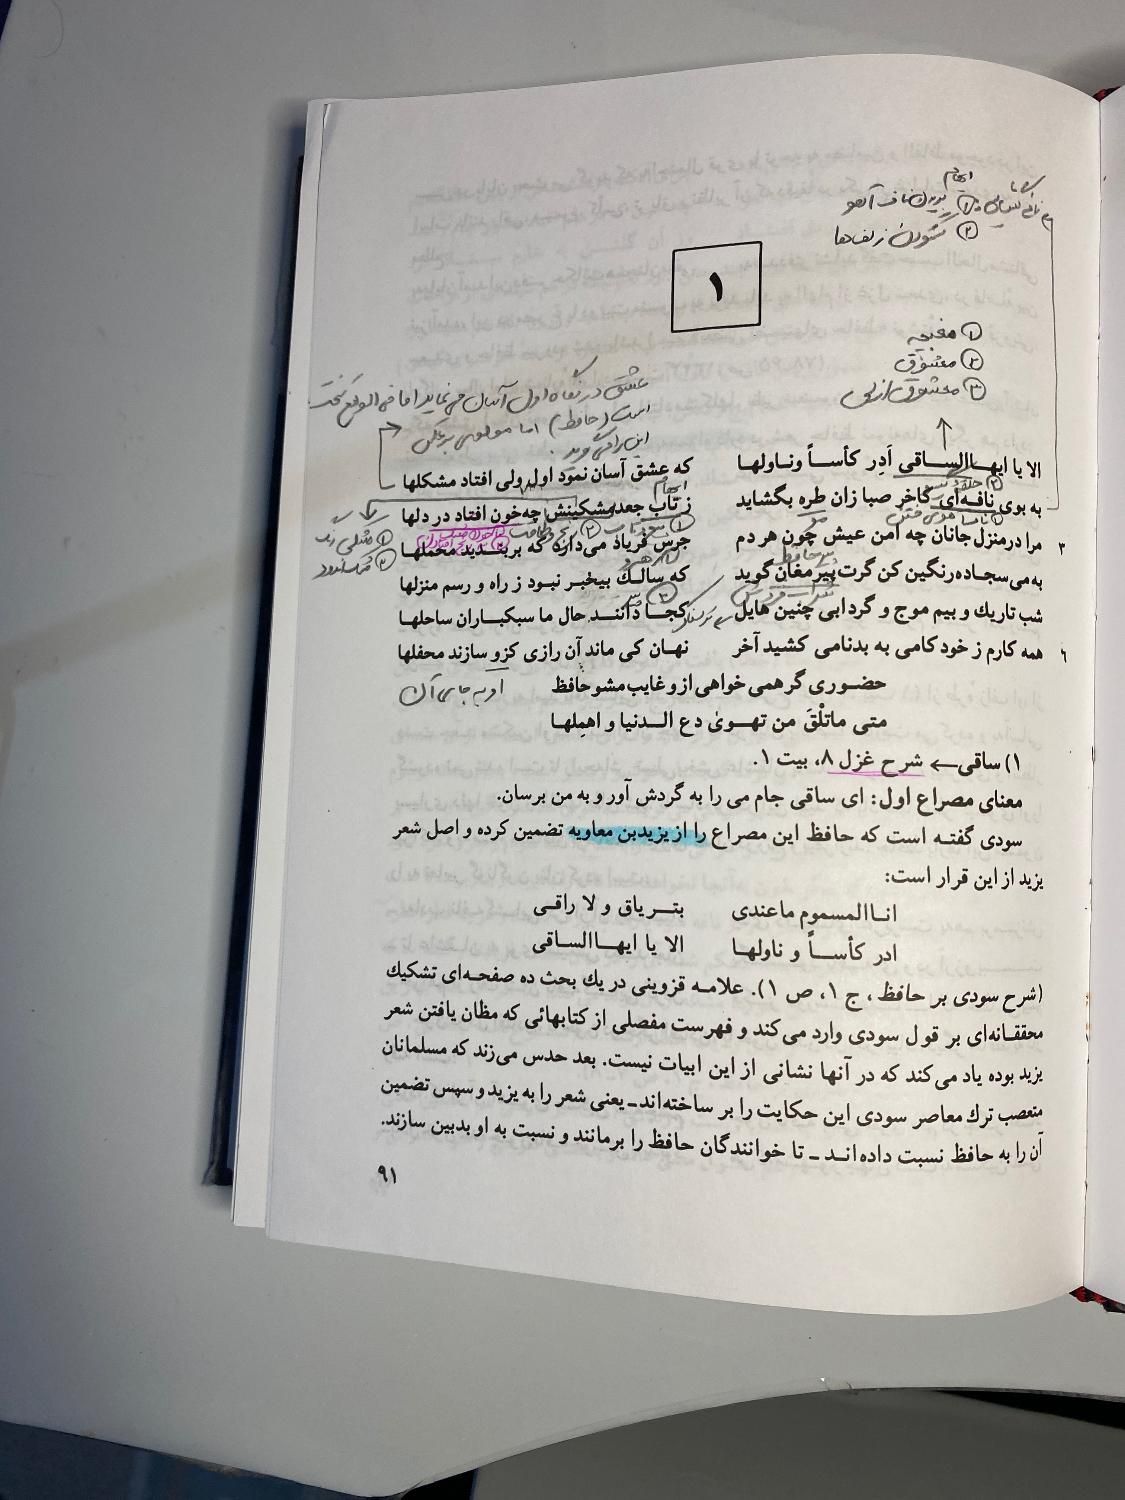 ایهام
① بریدن ناف آهو
② گشودن زلف‌ها
۱
① مغبچه
② معشوق
③ معشوق ازلی
عشق در نگاه اول آسان می نماید اما فی الواقع سخت
است (حافظ) اما مولوی برعکس
این را می گوید.
الا یا ایهاالساقی اَدِر کأساً وناولها که عشق آسان نمود اول ولی افتاد مشکلها
ایهام
به بوی نافه‌ای کاخر صبا زان طره بگشاید ز تاب جعد مشکینش چه خون افتاد در دلها
۳ مرا درمنزل جانان چه امن عیش چون هر دم جرس فریاد می‌دارد که بربندید محملها
به می سجاده رنگین کن گرت پیر مغان گوید که سالك بیخبر نبود ز راه و رسم منزلها
شب تاریك و بیم موج و گردابی چنین هایل کجا دانند حال ما سبکباران ساحلها
۶ همه کارم ز خودکامی به بدنامی کشید آخر نهان کی ماند آن رازی کزو سازند محفلها
حضوری گر همی خواهی ازو غایب مشو حافظ
او به جای آن
متی ماتلْقَ من تهویٰ دع الدنیا و اهمِلها
۱) ساقی ← شرح غزل ۸، بیت ۱.
معنای مصراع اول: ای ساقی جام می را به گردش آور و به من برسان.
سودی گفته است که حافظ این مصراع را از یزیدبن معاویه تضمین کرده و اصل شعر
یزید از این قرار است:
اناالمسموم ماعندی بتریاق و لا راقی
ادر کأساً و ناولها الا یا ایهاالساقی
(شرح سودی بر حافظ، ج ۱، ص ۱). علامه قزوینی در یك بحث ده صفحه‌ای تشکیك
محققانه‌ای بر قول سودی وارد می‌کند و فهرست مفصلی از کتابهائی که مظان یافتن شعر
یزید بوده یاد می‌کند که در آنها نشانی از این ابیات نیست. بعد حدس می‌زند که مسلمانان
متعصب ترك معاصر سودی این حکایت را بر ساخته‌اند ـ یعنی شعر را به یزید و سپس تضمین
آن را به حافظ نسبت داده‌اند ـ تا خوانندگان حافظ را برمانند و نسبت به او بدبین سازند.
۹۱